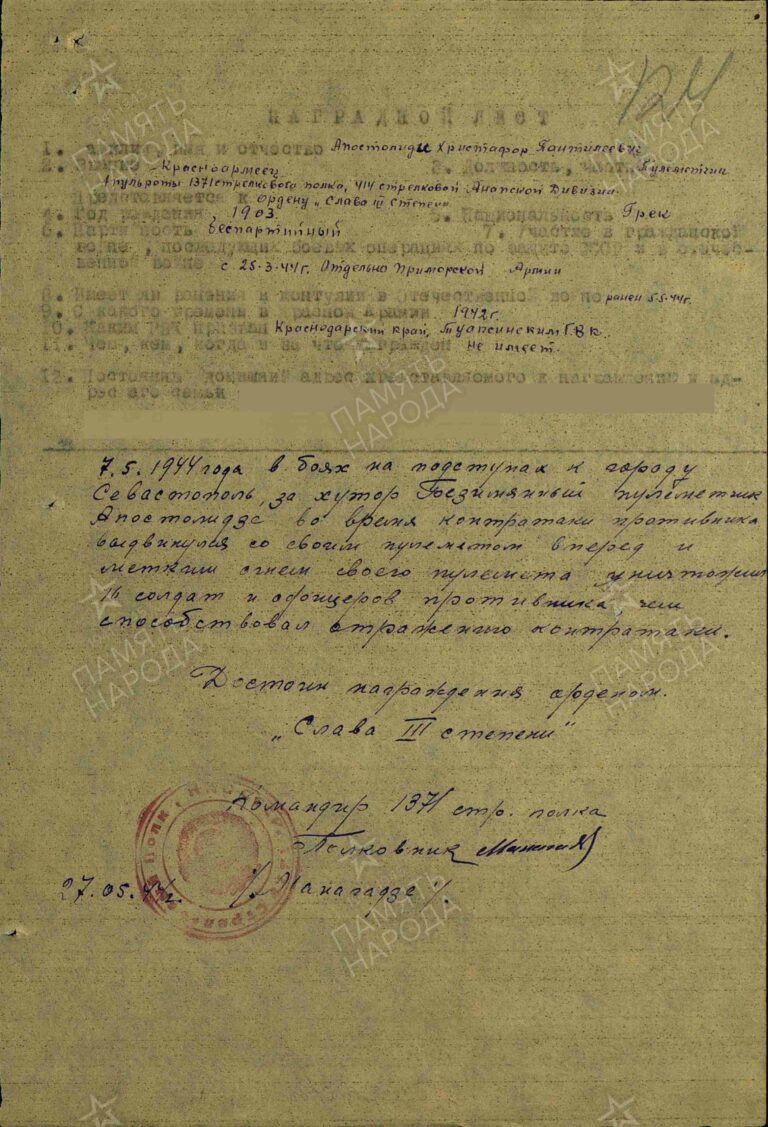 124
НАГРАДНОЙ ЛИСТ
1. Фамилия, имя и отчество Апостолиди Христафор Пантилеевич
2. Звание Красноармеец 3. Должность, часть Пулеметчик
1 пульроты 1371 стрелкового полка, 414 стрелковой Анапской Дивизии
Представляется к Ордену „Слава III степени"
4. Год рождения 1903 5. Национальность Грек
6. Партийность беспартийный 7. Участие в гражданской
войне, последующих боевых операциях по защите СССР и в отечес-
венной войне с 25-3-44г. Отдельно Приморской Армии
8. Имеет ли ранения и контузии в отечественной войне ранен 5.5.44г.
9. С какого времени в Красной Армии 1942г.
10. Каким РВК призван Краснодарский край, Туапсинским ГВК
11. Чем, кем, когда и за что награжден не имеет.
12. Постоянный домашний адрес представляемого к награждению и ад-
рес его семьи
7.5.1944 года в боях на подступах к городу
Севастополь, за хутор Безимянный пулеметчик
Апостолидзе во время контратаки противника
выдвинулся со своим пулеметом вперед и
метким огнем своего пулемета уничтожил
солдат и офицеров противника, чем
способствовал отражению контратаки.
Достоин награждения орденом
„Слава III степени"
Командир 1371 стр. полка
Полковник
27.05.44г. /. Манагадзе /.
ПАМЯТЬ НАРОДА